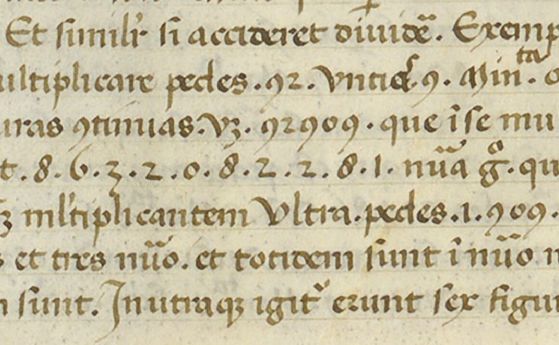 Et similr̄ si accideret divide᷑. Exemp
ultiplicare pedes . 92 . vntie . 9 . Min.ᵗᵃ
uras 9tinuas . vꝫ . 92909 . que ī se mu
t . 8 . 6 . 3 . 2 . 0 . 8 . 2 . 2 . 8 . 1 . nūa g̊ . qu
ꝫ ml̄tiplicantem vltra . pedes . 1 . 909
et tres nūo . et totidem sunt ī nūo
sunt . In utraqꝫ igit᷑ erunt sex figu